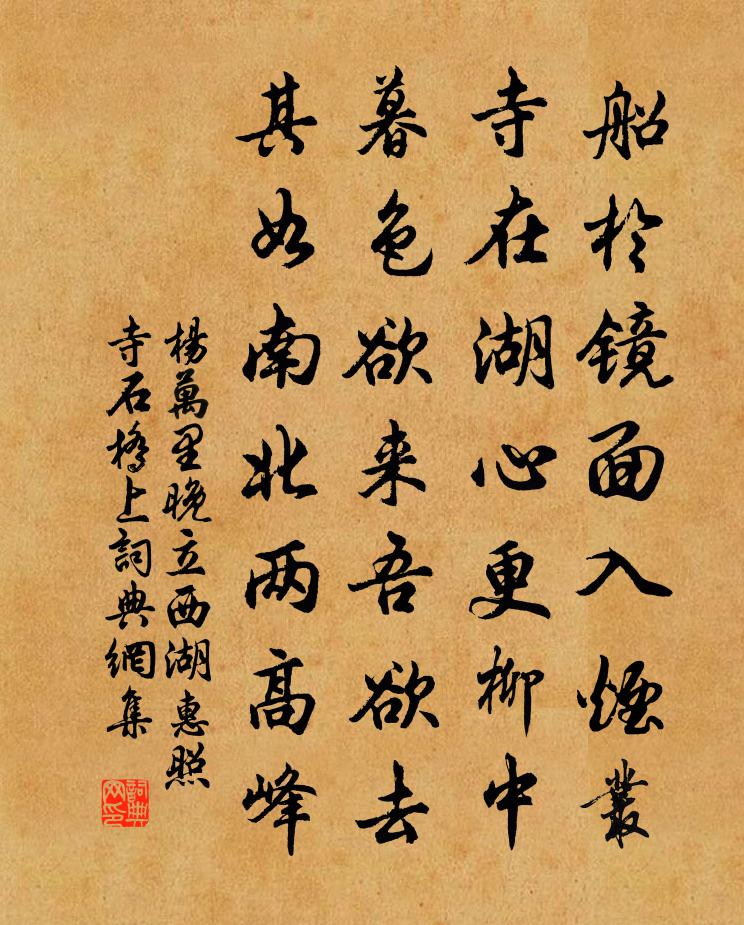 船於镜面入煙叢
寺在湖心更柳中
暮色欲来吾欲去
其如南北两高峰
楊萬里晚立西湖惠照
寺石橋上詞典網集
詞典
网印